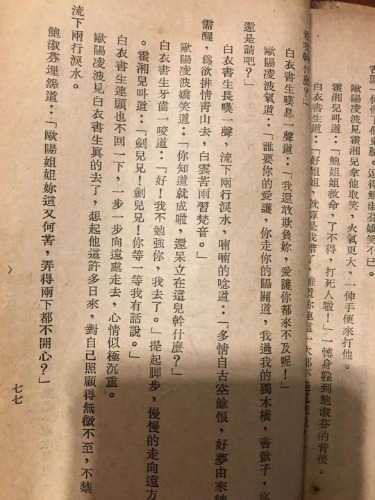 歐陽凌波見霍湘兒拿他取笑，火氣更大，一伸手便來打他。
霍湘兒叫道：「鮑姐姐救命，了不得，打死人啦！」一悖身躱到鮑淑芬的背後。
白衣書生道：「好姐姐，
白衣書生嘆息一聲道：「我還敢欺負妳，愛護你都來不及呢！」
歐陽凌波氣道：「誰要你的愛護，你走你的陽關道，我過我的獨木橋，書獃子，
還是請吧？」
白衣書生長嘆一聲，流下兩行淚水，喃喃的唸道：「多情自古空餘恨，好夢由來
需醒，爲欲排情青山去，白雲苦雨習梵音。」
歐陽凌波嬌笑道：「你知道就成啦，還呆立在這兒幹什麼？」
白衣書生牙齒一咬道：「好！我不勉強你，我去了。」提起脚步，慢慢的走向遠方
。霍湘兒叫道：「劍兒兒！劍兒兒！你等一等我有話說。」
白衣書生連頭也不回一下，一步一步向遠處走去，心情似極沉重。
歐陽凌波見白衣書生眞的去了，想起他這許多日來，對自己照顧得無微不至，不禁
流下兩行淚水。
鮑淑芬埋怨道：「歐陽姐姐妳這又何苦，弄得兩下都不開心？」
七七